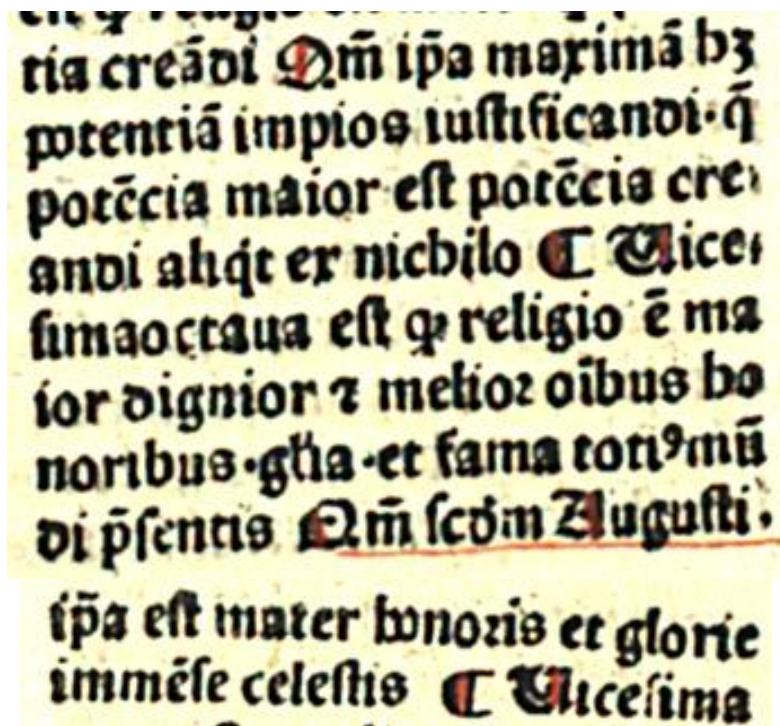 tia creādi Qm̄ ip̄a maximā hꝫ
potentiā impios iustificandi·q̄
potēcia maior est potēcia cre⸗
andi aliqͥt ex nichilo ¶ Uice⸗
simaoctaua est ꝙ religio ē ma
ior dignior ⁊ melioꝛ oībus ho
noribus·gl̄ia·et fama totiꝰ mū
di p̄sentis Qm̄ scd̄m Augusti·
ip̄a est mater honoꝛis et glorie
immēse celestis ¶ Uicesima